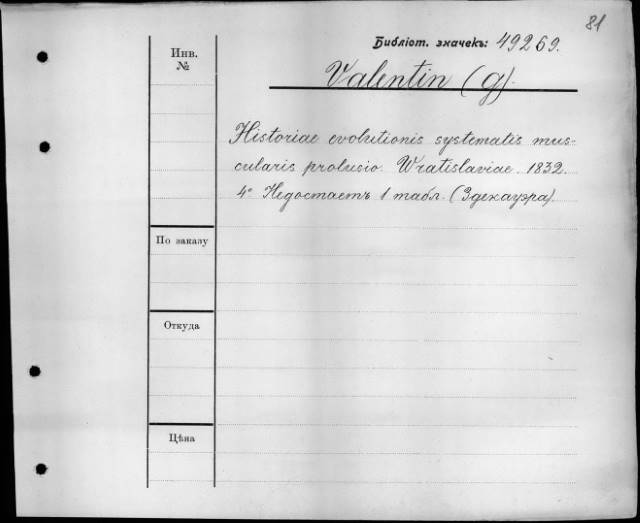 81
Библіот. значекъ: 49269.
Инв.
№
Valentin (G).
Historiae evolutionis systematis mus-
cularis prolusio. Wratislaviae. 1832.
4° Недостаетъ 1 табл. (Здекауэра).
По заказу
Откуда
Цѣна